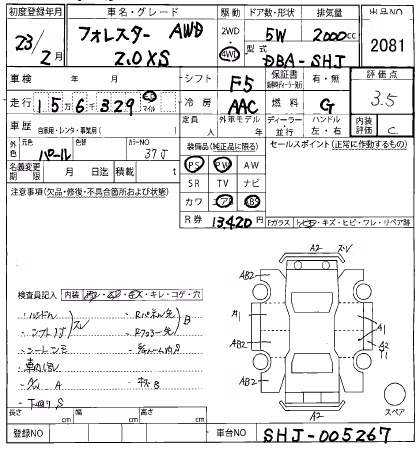 初度登録年月 車名・グレード 駆動 ドア数・形状 排気量 出品NO
23/2月 フォレスター AWD 2WD 5W 2000cc 2081
2.0XS 4WD 型式 DBA-SHJ
車検 年 月 シフト F5 保証書 有・無 評価点
走行 156,329 km マイル 冷房 AAC 燃料 G 3.5
車歴 自家用・レンタ・事業用( ) 定員 人 外車モデル 年 ディーラー 並行 ハンドル 左・右 内装評価 C
外色 元色 パール 色替 カラーNO 37J 装備品(純正品に限る) セールスポイント(正常に作動するもの)
名義変更期限 月 日迄 積載 t PS PW AW
注意事項(欠品・修復・不具合箇所および状態) SR TV ナビ
カワ エアB ABS
R券 13420円 Fガラス トビ・キズ・ヒビ・ワレ・リペア跡
A2 スレ
AB2 AB2
検査員記入 内装 キレ・コゲ・穴
ハンドル A1 A1
シフトノブ スレ B A2
シートシミ Y1
AB2 AB2
A
下回りS A2
スペア
長さ cm 幅 cm 高さ cm
登録NO 車台NO SHJ-005267